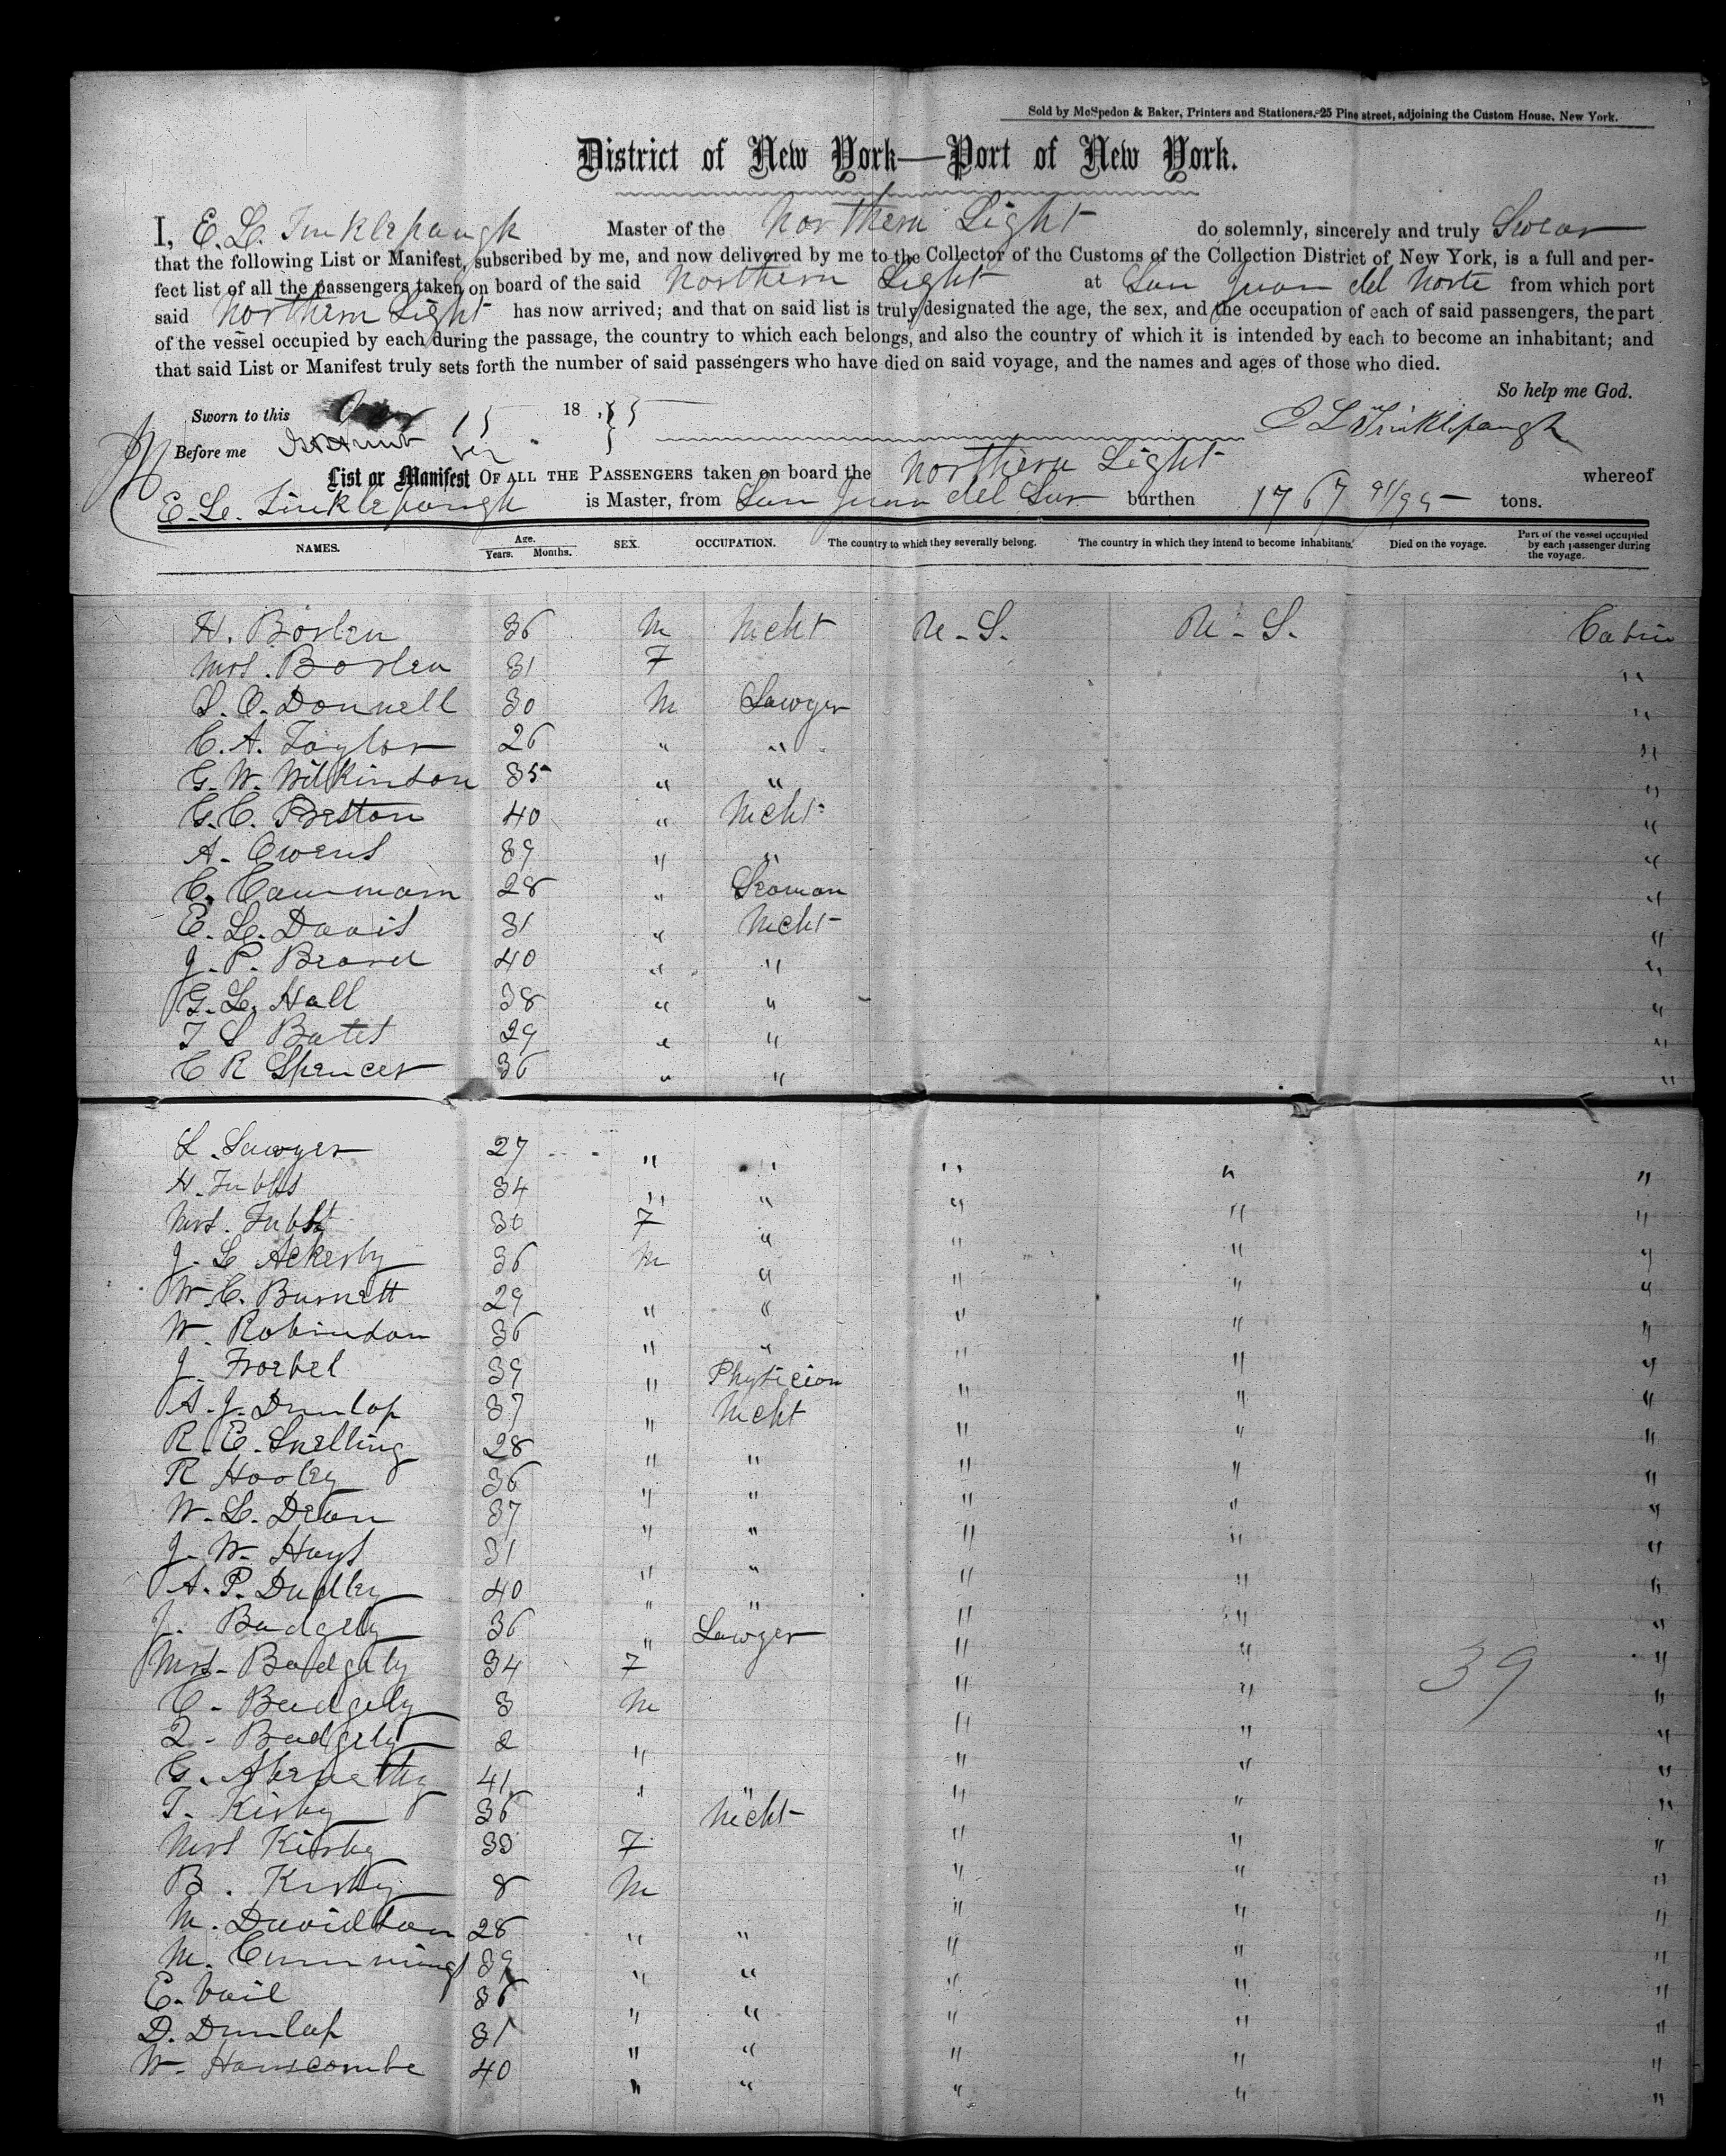 Sold by McSpedon & Baker, Printers and Stationers, 25 Pine street, adjoining the Custom House, New York.
District of New York—Port of New York.
I, E. L. Tinklepaugh Master of the Northern Light do solemnly, sincerely and truly Swear
that the following List or Manifest, subscribed by me, and now delivered by me to the Collector of the Customs of the Collection District of New York, is a full and per-
fect list of all the passengers taken on board of the said Northern Light at San Juan del Norte from which port
said Northern Light has now arrived; and that on said list is truly designated the age, the sex, and the occupation of each of said passengers, the part
of the vessel occupied by each during the passage, the country to which each belongs, and also the country of which it is intended by each to become an inhabitant; and
that said List or Manifest truly sets forth the number of said passengers who have died on said voyage, and the names and ages of those who died.
So help me God.
Sworn to this 15 18 5 E L Tinklepaugh
Before me
List or Manifest OF ALL THE PASSENGERS taken on board the Northern Light whereof
E. L. Tinklepaugh is Master, from San Juan del Sur burthen 1767 91/95 tons.
NAMES. Age. Years. Months. SEX. OCCUPATION. The country to which they severally belong. The country in which they intend to become inhabitants. Died on the voyage. Part of the vessel occupied by each passenger during the voyage.
H. Boslen 36 M Mcht U-S. U-S. Cabin
Mrs. Boslen 31 F "
S. O. Donnell 30 M Lawyer "
C. A. Taylor 26 " " "
G. W. Wilkinson 35 " " "
G. C. Preston 40 " Mcht "
A. Owens 39 " " "
C. 28 " Seaman "
E. L. Davis 31 " Mcht "
J. P. Beard 40 " " "
G. L. Hall 38 " " "
T S Bates 29 " " "
C R Spencer 36 " " "
L. Sawyer 27 " " " " "
H. Tubbs 34 " " " " "
Mrs. Tubbs 30 F " " " "
J. L Ackerby 36 M " " " "
W. C. Burnett 29 " " " " "
W. Robinson 36 " " " " "
J. Froebel 39 " Physician " " "
A. J. Dunlop 37 " Mcht " " "
R. E. Snelling 28 " " " " "
R Hooley 36 " " " " "
W. L. Dean 37 " " " " "
J. W. Hays 31 " " " " "
A. P. Dudley 40 " " " " "
J. Badgely 36 " Lawyer " " "
Mrs. Badgely 34 F " " 39 "
C. Badgely 3 M " " "
Q. Badgely 2 " " " "
G. Abernethy 41 " " " " "
T. Kirby 36 Mcht " " "
Mrs Kirby 33 F " " "
B. Kirby 8 M " " "
M. Davidson 28 " " " " "
M. Cummings 39 " " " " "
E. Vail 36 " " " " "
D. Dunlap 31 " " " " "
W. Hanscombe 40 " " " " "